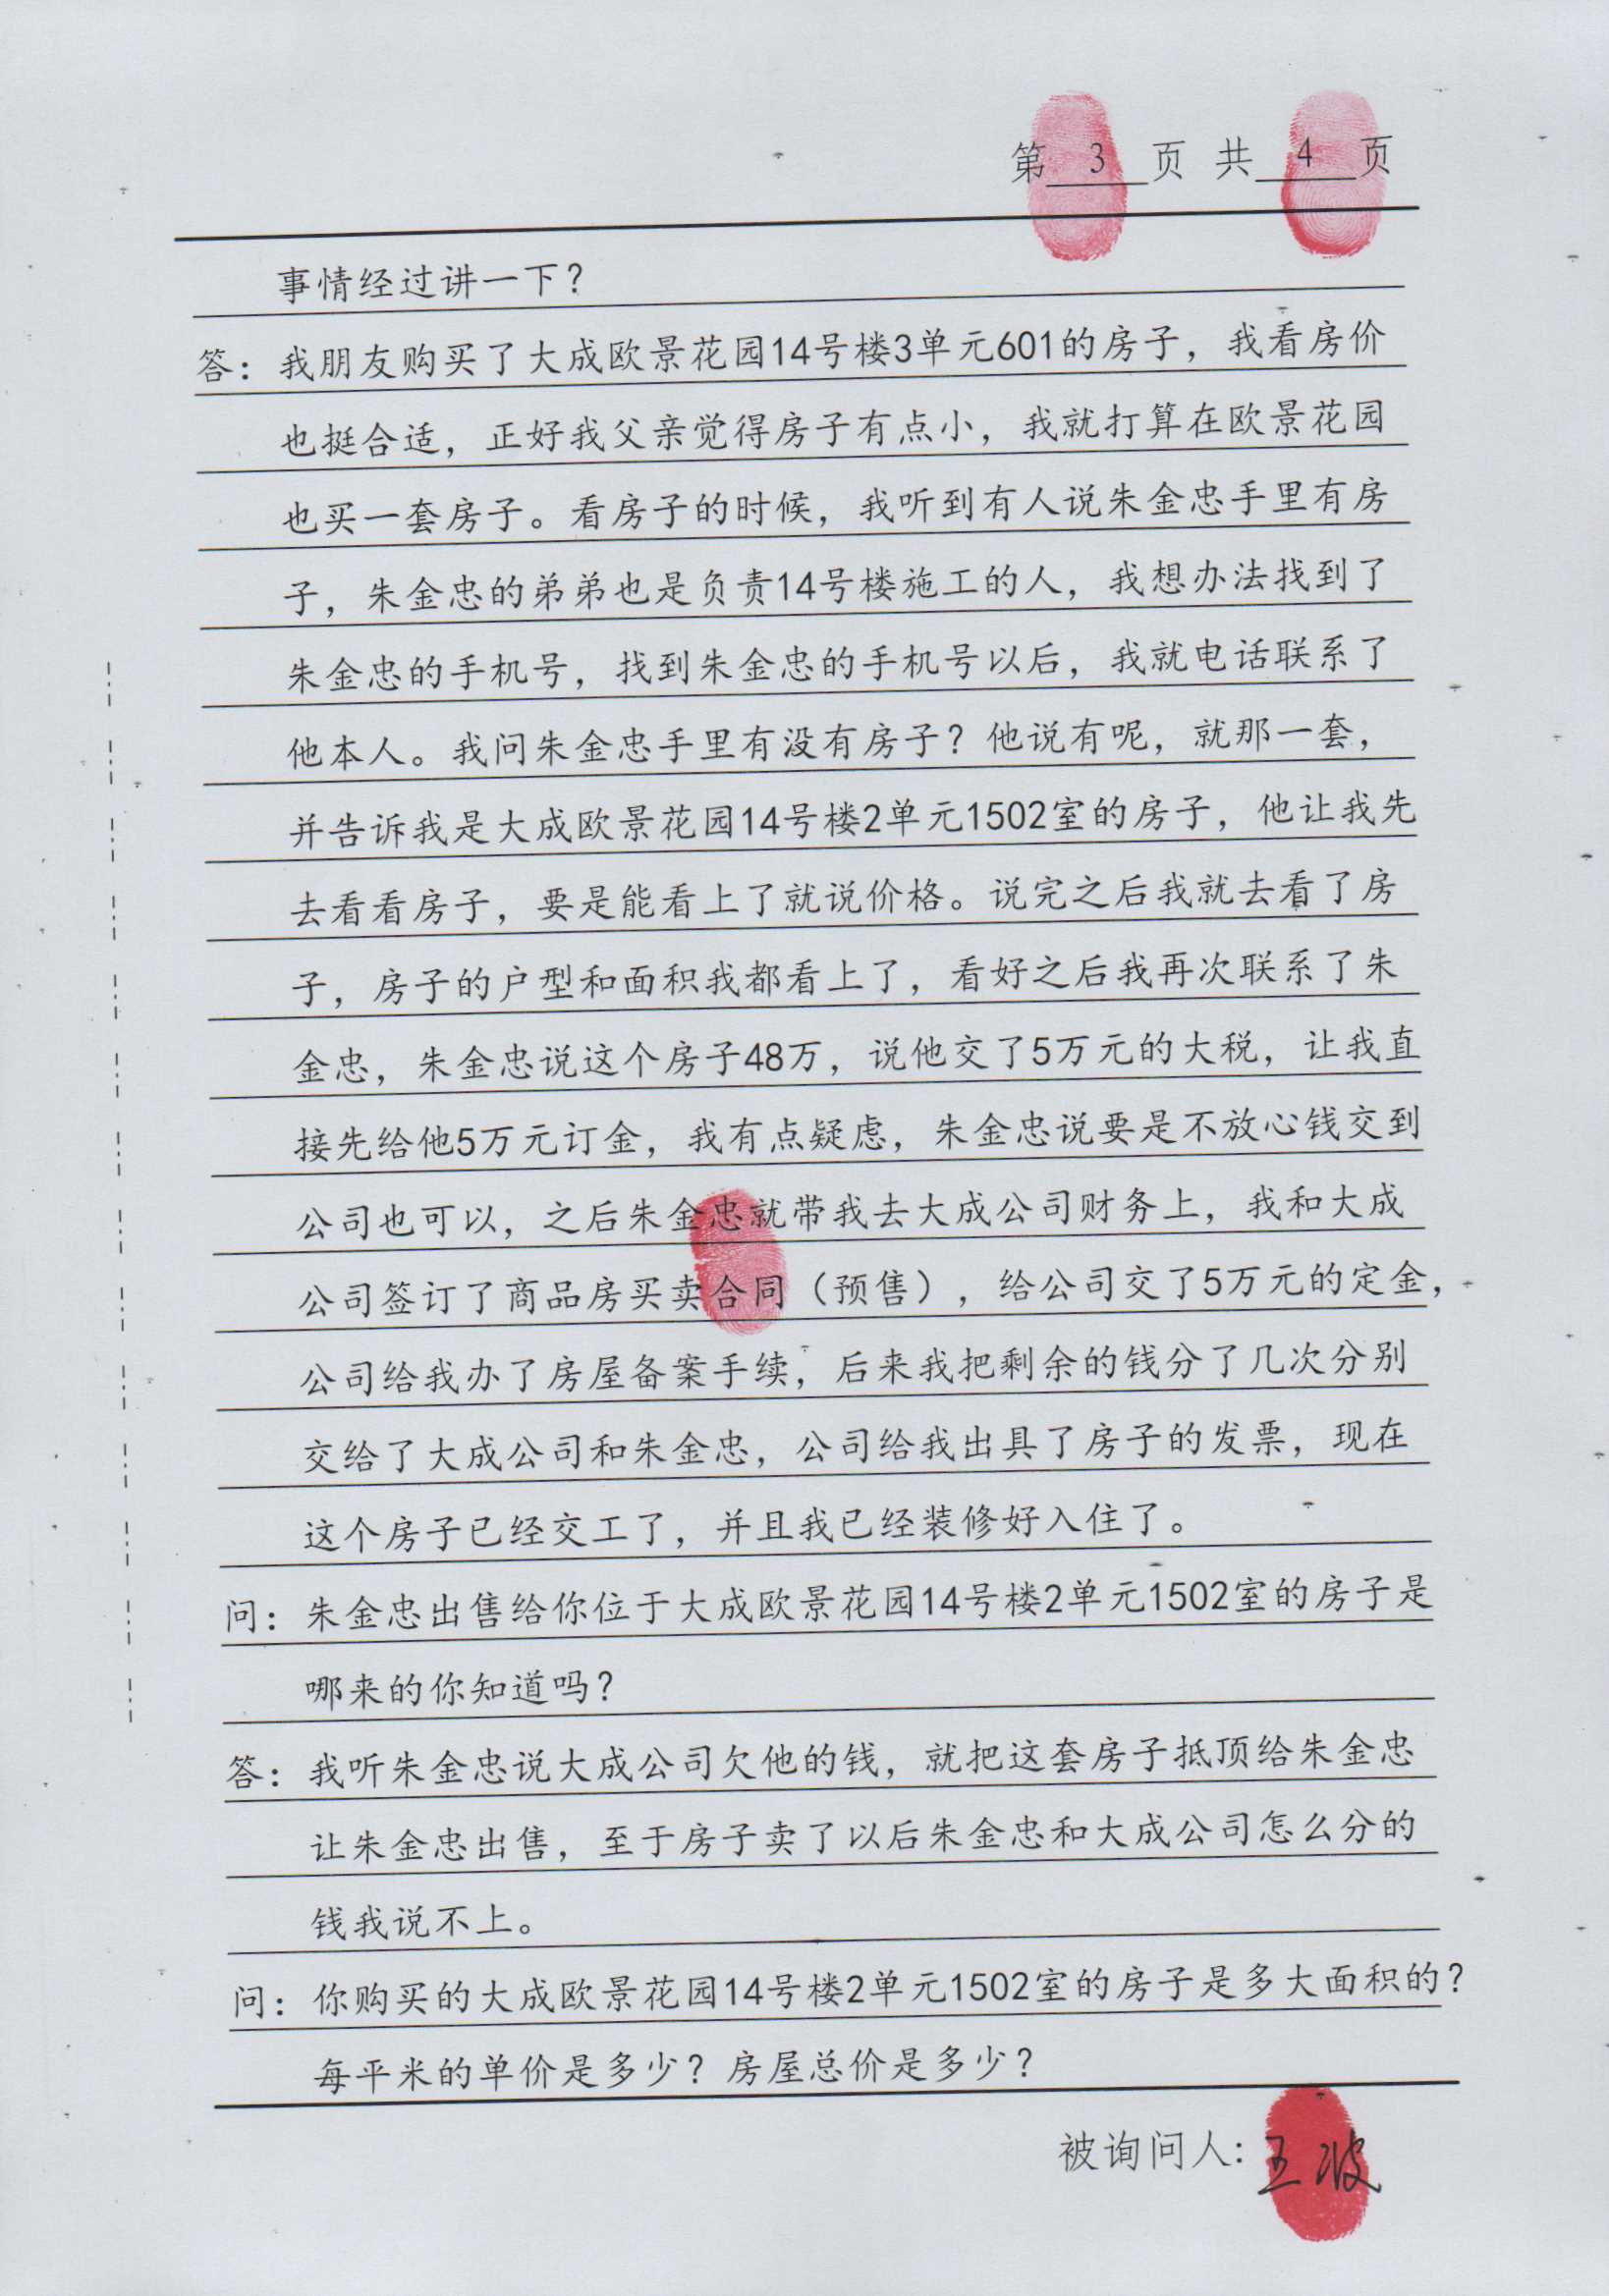 第 3 页 共 4 页
事情经过讲一下？
答：我朋友购买了大成欧景花园14号楼3单元601的房子，我看房价
也挺合适，正好我父亲觉得房子有点小，我就打算在欧景花园
也买一套房子。看房子的时候，我听到有人说朱金忠手里有房
子，朱金忠的弟弟也是负责14号楼施工的人，我想办法找到了
朱金忠的手机号，找到朱金忠的手机号以后，我就电话联系了
他本人。我问朱金忠手里有没有房子？他说有呢，就那一套，
并告诉我是大成欧景花园14号楼2单元1502室的房子，他让我先
去看看房子，要是能看上了就说价格。说完之后我就去看了房
子，房子的户型和面积我都看上了，看好之后我再次联系了朱
金忠，朱金忠说这个房子48万，说他交了5万元的大税，让我直
接先给他5万元订金，我有点疑虑，朱金忠说要是不放心钱交到
公司也可以，之后朱金忠就带我去大成公司财务上，我和大成
公司签订了商品房买卖合同（预售），给公司交了5万元的定金，
公司给我办了房屋备案手续，后来我把剩余的钱分了几次分别
交给了大成公司和朱金忠，公司给我出具了房子的发票，现在
这个房子已经交工了，并且我已经装修好入住了。
问：朱金忠出售给你位于大成欧景花园14号楼2单元1502室的房子是
哪来的你知道吗？
答：我听朱金忠说大成公司欠他的钱，就把这套房子抵顶给朱金忠
让朱金忠出售，至于房子卖了以后朱金忠和大成公司怎么分的
钱我说不上。
问：你购买的大成欧景花园14号楼2单元1502室的房子是多大面积的？
每平米的单价是多少？房屋总价是多少？
被询问人：王波